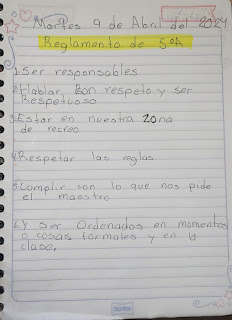 Martes 9 de Abril del 2024
Reglamento de 5°A
1-Ser responsables
2-Hablar, con respeto y ser
Respetuoso
3-Estar en nuestra zona
de recreo
4-Respetar las reglas
5-Cumplir con lo que nos pide
el maestro
6-Y ser Ordenados en momentos
o cosas formales y en la
clase.
Scribe